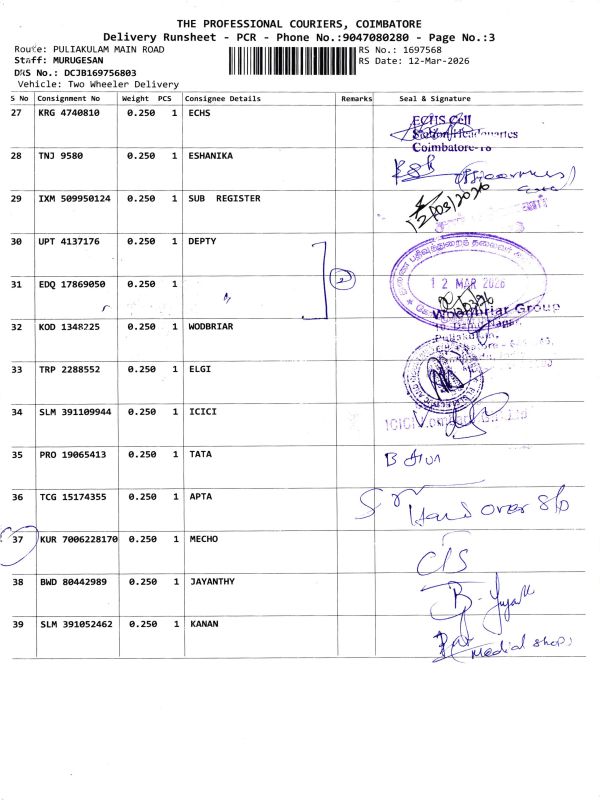 THE PROFESSIONAL COURIERS, COIMBATORE
Delivery Runsheet - PCR - Phone No.:9047080280 - Page No.:3
Route: PULIAKULAM MAIN ROAD
RS No.: 1697568
Staff: MURUGESAN
RS Date: 12-Mar-2026
DRS No.: DCJB169756803
Vehicle: Two Wheeler Delivery
S No Consignment No Weight PCS Consignee Details Remarks Seal & Signature
27 KRG 4740810 0.250 1 ECHS
ECHS Cell
Station Headquartes
Coimbatore-18
28 TNJ 9580 0.250 1 ESHANIKA
29 IXM 509950124 0.250 1 SUB REGISTER
12/03/2026
30 UPT 4137176 0.250 1 DEPTY
2
12 MAR 2026
31 EDQ 17869050 0.250 1
Woodbriar Group
32 KOD 1348225 0.250 1 WODBRIAR
33 TRP 2288552 0.250 1 ELGI
34 SLM 391109944 0.250 1 ICICI
35 PRO 19065413 0.250 1 TATA
36 TCG 15174355 0.250 1 APTA
Hand over S/o
37 KUR 7006228170 0.250 1 MECHO
C/S
38 BWD 80442989 0.250 1 JAYANTHY
39 SLM 391052462 0.250 1 KANAN
Medial shop